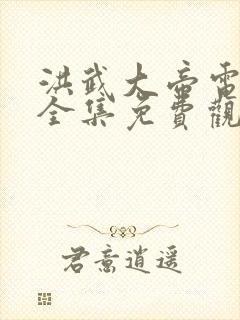 洪武大帝電
全集免費觀
君意逍遥